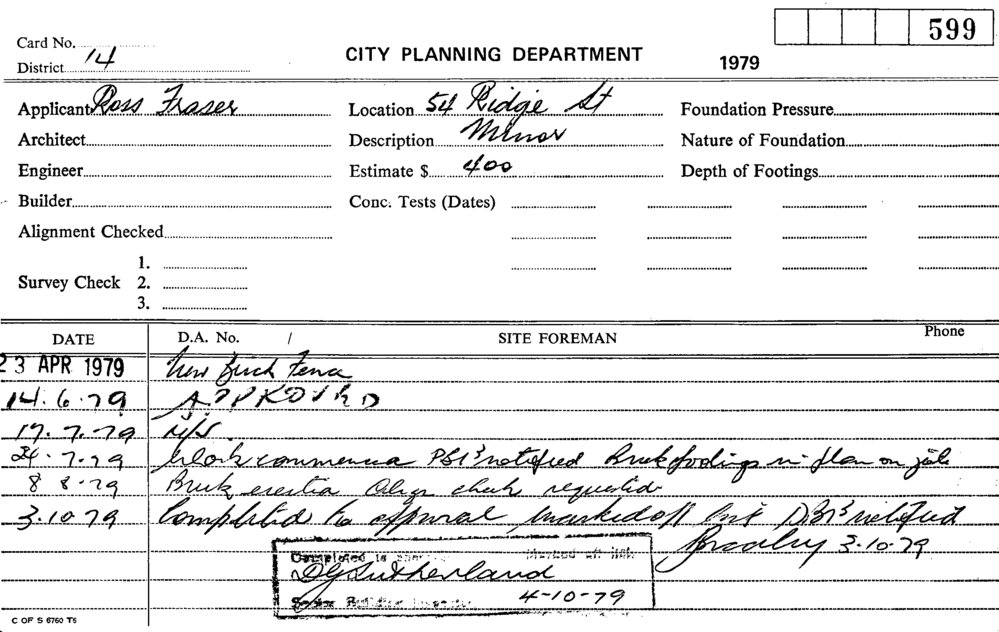 599
Card No.
District 14
CITY PLANNING DEPARTMENT
1979
Applicant Ross Fraser
Location 54 Ridge St
Foundation Pressure
Architect
Description Minor
Nature of Foundation
Engineer
Estimate $ 400
Depth of Footings
Builder
Conc. Tests (Dates)
Alignment Checked
Survey Check
1.
2.
3.
DATE
D.A. No. /
SITE FOREMAN
Phone
23 APR 1979 New Brick Fence
14.6.79
17.7.79 N/S.
24.7.79 Work commenced notified Brick footings in plan on job
8 8.79 Brick erected Align check requested
3.10.79 Completed to approval marked off list notified
3.10.79
Completed to Marked off
DG Sutherland
Senior Building Inspector 4-10-79
C OF S 6760 T5